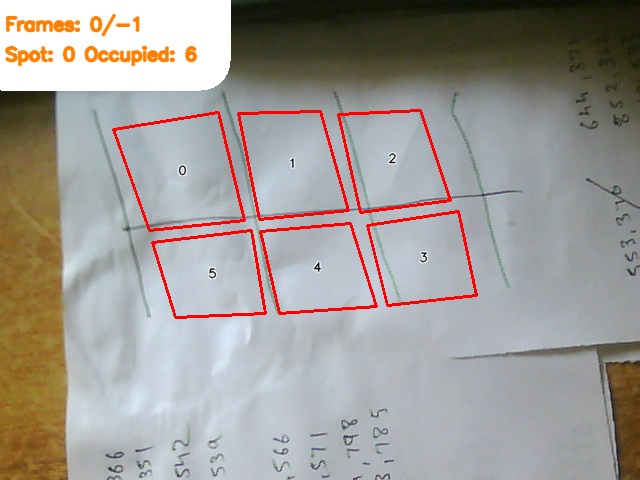 Frames: 0/-1
Spot: 0 Occupied: 6
0
1
2
3
4
5
644,371
852,362
553,376
366
351
542
539
,566
,571
,798
3,785